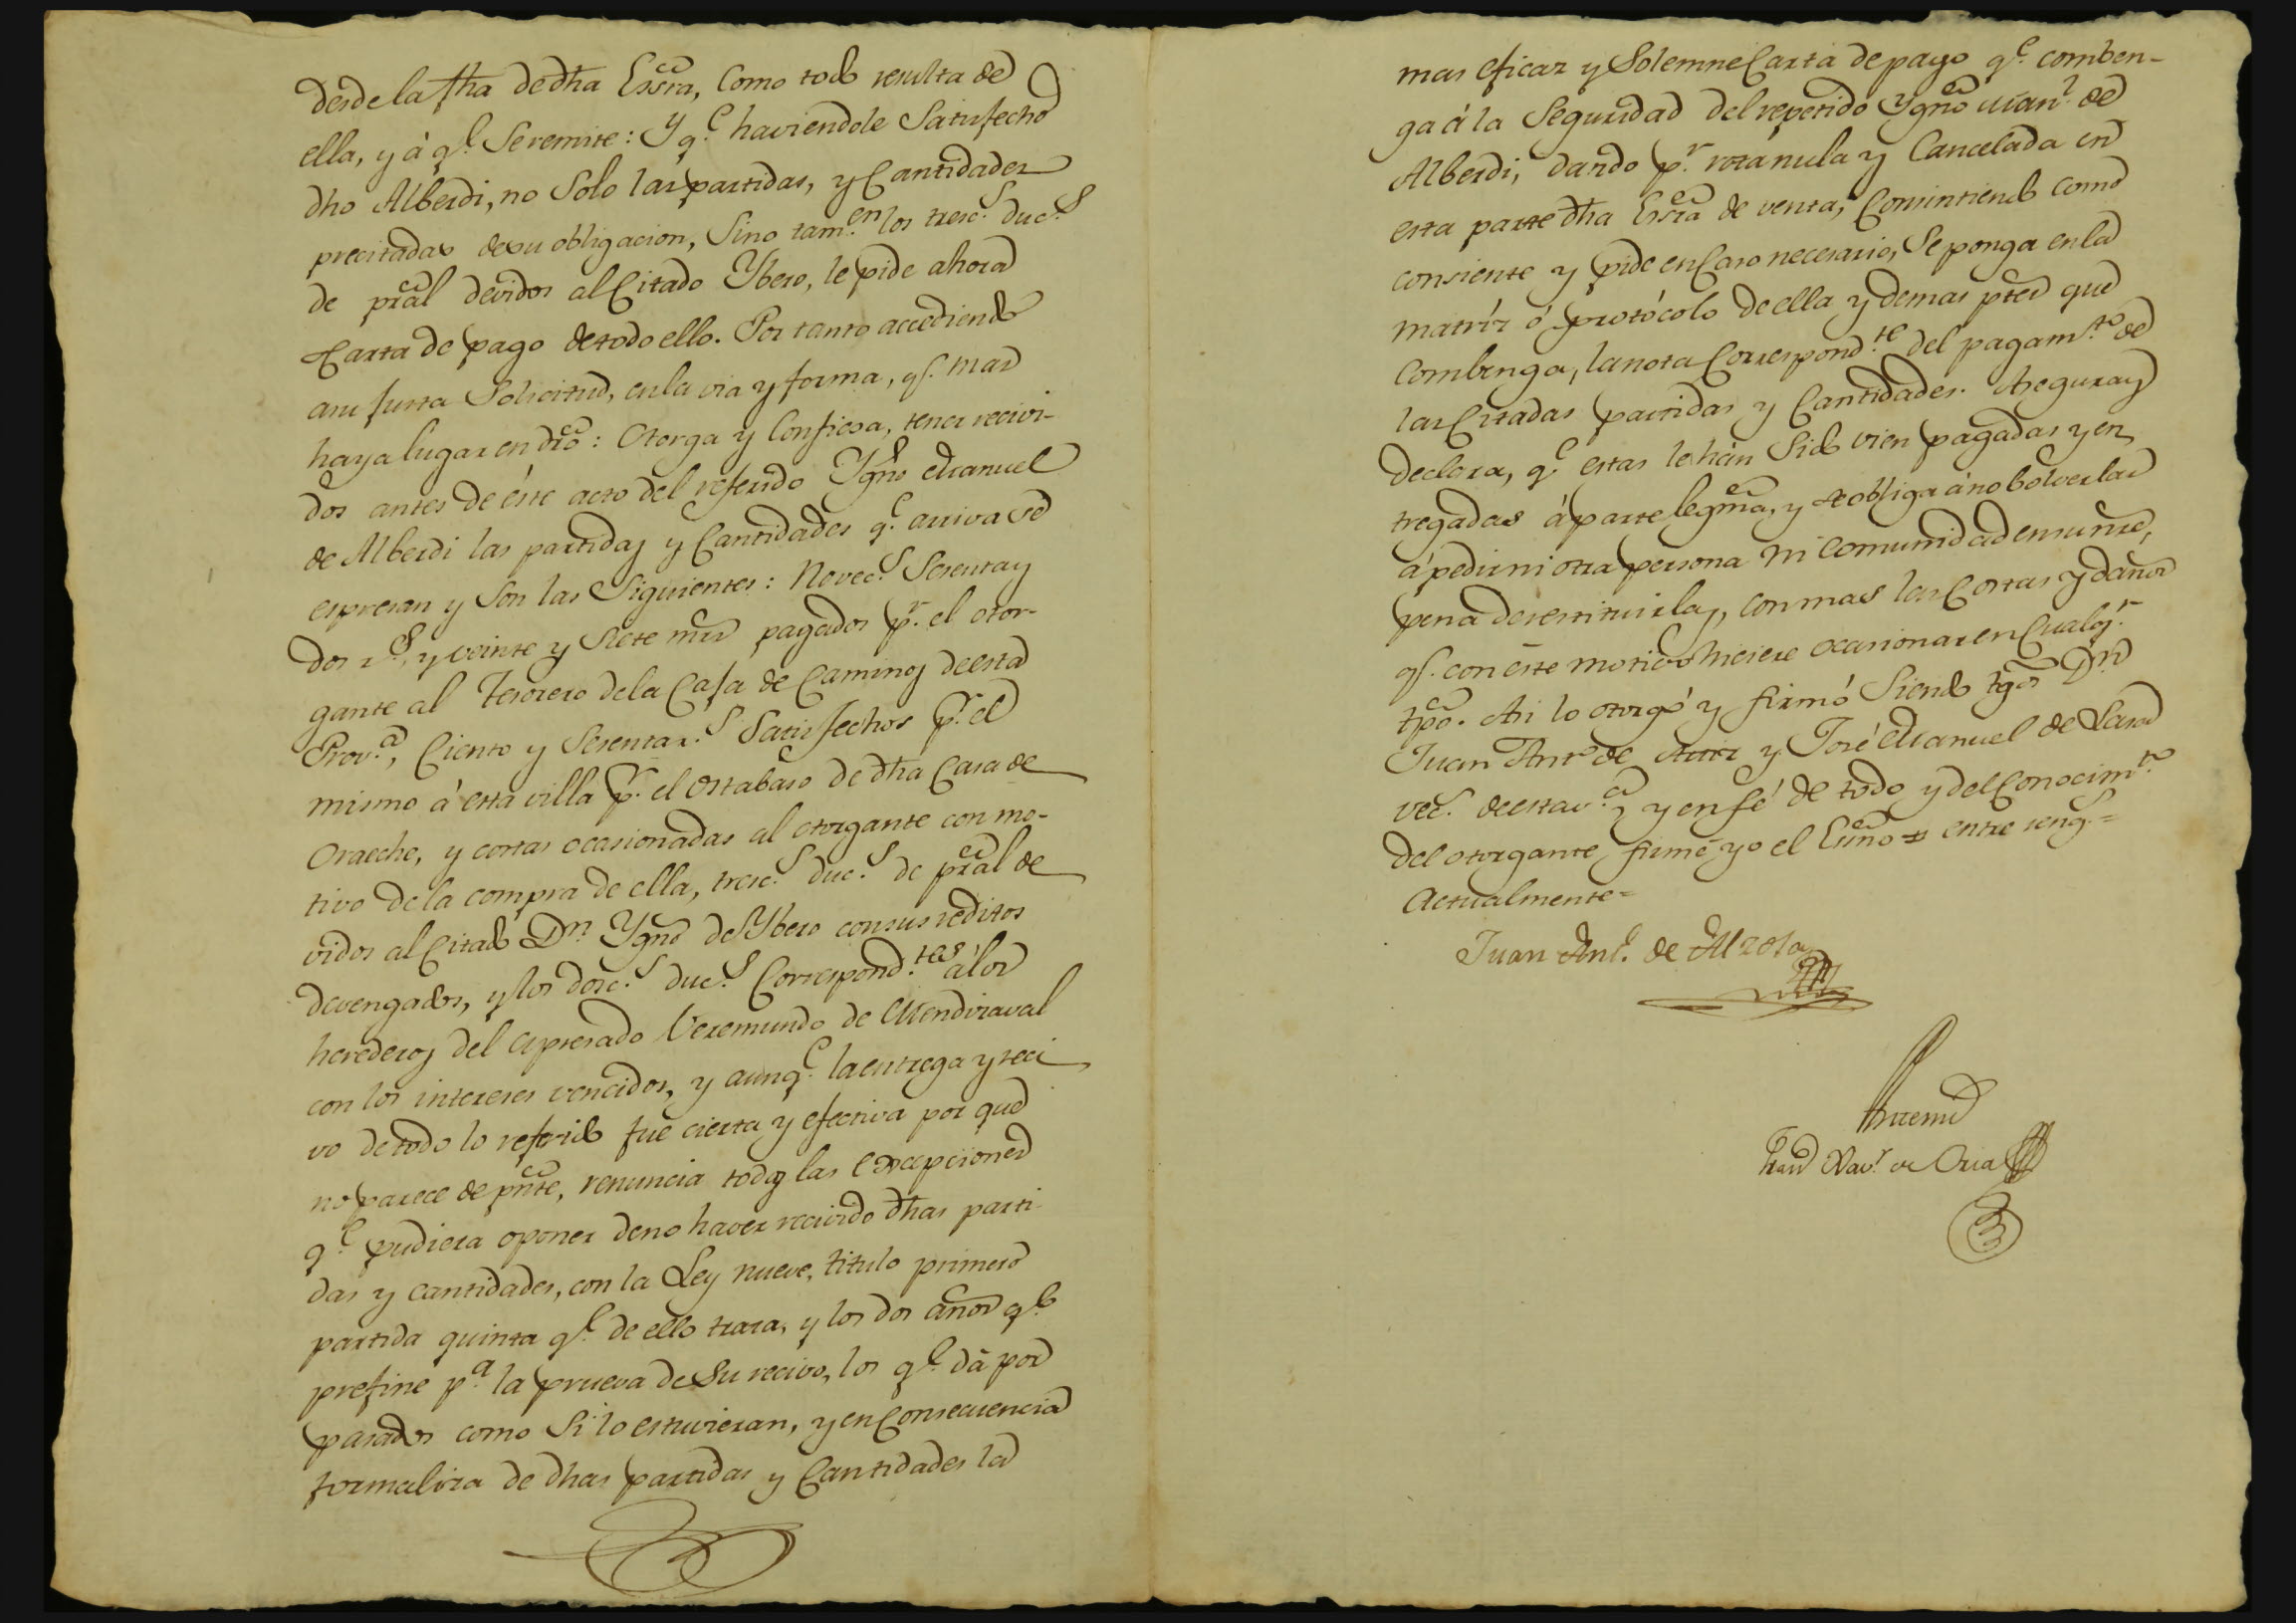 desde la fha de dha Essra, Como todo resulta de
ella, y á q.e Se remite: Y q.e haviendole Satisfecho
dho Alberdi, no Solo las partidas, y Cantidades
precitadas de su obligacion, Sino tam.en los tresc.s duc.s
de pral devidos al Citado Ybero, le pide ahora
Carta de pago de todo ello. Por tanto accediendo
asu justa Solicitud, en la via y forma, q.e mas
haya lugar en dro: Otorga y Confiesa, tener recivi-
dos antes de éste acto del referido Ygno Manuel
de Alberdi las partidas y Cantidades q.e arriva se
espresan y Son las Siguientes: Novec.s Sesenta y
dos r.s, y veinte y Siete mrs pagados p.r el otor-
gante al Tesorero de la Casa de Caminos de esta
Prov.a, Ciento y Sesenta r.s Satisfechos p.r el
mismo á esta villa p.r el ostabaso de dha Casa de
Oraeche, y costas ocasionadas al otorgante con mo-
tivo de la compra de ella, tresc.s duc.s de pral de
vidos al Citado Dn. Ygno de Ybero con sus reditos
devengados, y los dosc.s duc.s Correspond.tes á los
herederos del espresado Veremundo de Mendiraval
con los intereses vencidos, y aunq.e la entrega y reci
vo de todo lo referido fue cierta y efectiva por que
no parece de pnte, renuncia todas las excepciones
q.e pudiera oponer de no haver recivido dhas parti-
das y cantidades, con la Ley nueve, titulo primero
partida quinta q.e de ello trata, y los dos años q.e
prefine p.a la prueva de Su recivo, los q.e dá por
pasados como Si lo estuvieran, y en Consecuencia
formaliza de dhas partidas y Cantidades la
mas eficaz y Solemne Carta de pago q.e comben-
ga á la Seguridad del repetido Ygno Man.l de
Alberdi, dando p.r rota nula y Cancelada en
esta parte dha Essra de venta, Consintiendo como
consiente y pide en Caso necesario, Se ponga en la
matríz ó protócolo de ella y demas ptes que
Combenga, la nota Correspond.te del pagam.to de
las Citadas partidas y Cantidades. Asegura y
declara, q.e estas le hán Sido vien pagadas y en
tregadas á parte legma, y se obliga á no bolverlas
á pedir ni otra persona ni Comunidad en su nre,
pena de restituirlas, con mas las Costas y daños
q.e con éste motivo hiciere ocasionar en Cualq.r
tpo. Asi lo otorgó y firmó Siendo tgos Dn
Juan Ant.o de y José Manuel de
vec.s de esta v.a y en fé de todo y del Conocim.to
del otorgante firmé yo el Esno = entre reng.s =
Actualmente =
Juan Ant.o de Alzola
Antemi
Fran.co Xav.r de Oria